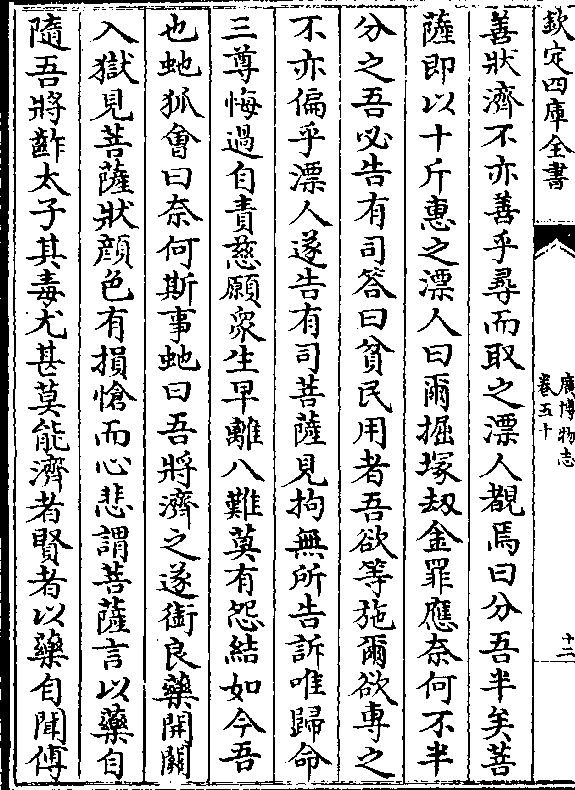 欽定四庫全書
廣博物志
卷五十
十二
善狀濟不亦善乎尋而取之漂人覩焉曰分吾半矣菩
薩即以十斤惠之漂人曰爾掘塚刼金罪應奈何不半
分之吾必告有司答曰貧民用者吾欲等施爾欲專之
不亦偏乎漂人遂告有司菩薩見拘無所告訴唯歸命
三尊悔過自責慈願衆生早離八難莫有怨結如今吾
也虵狐會曰奈何斯事虵曰吾將濟之遂銜良藥開關
入獄見菩薩狀顔色有損愴而心悲謂菩薩言以藥自
隨吾將齚太子其毒尤甚莫能濟者賢者以藥自聞傅